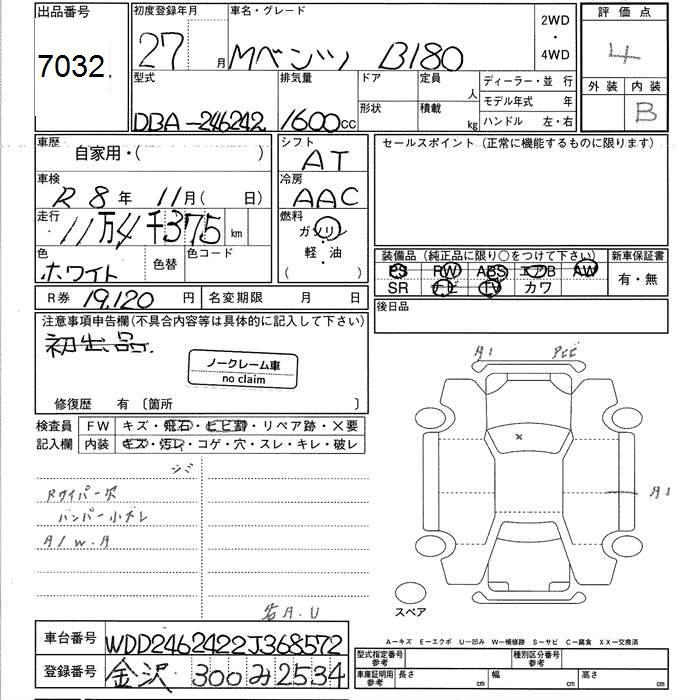 出品番号 初度登録年月 車名・グレード 2WD・4WD 評価点
7032 27 月 Mベンツ B180 4
型式 排気量 ドア 定員 人 ディーラー・並 行 外装 内装
モデル年式 年
形状 積載 kg ハンドル 左・右 B
DBA-246242 1600cc
車歴 自家用・( ) シフト AT セールスポイント (正常に機能するものに限ります)
車検 R8年 11月( 日) 冷房 AAC
走行 11万4千375 km 燃料 ガソリン
軽・油
( )
色 ホワイト 色替 色コード
装備品 (純正品に限り○をつけて下さい) 新車保証書
PS PW ABS エアB AW 有・無
SR ナビ TV カワ
R券 19,120 円 名変期限 月 日 後日品
注意事項申告欄(不具合内容等は具体的に記入して下さい)
初出品.
ノークレーム車
no claim
修復歴 有 〔箇所 〕
検査員 FW キズ・飛石・ヒビ割・リペア跡・×要
記入欄 内装 キズ・汚レ・コゲ・穴・スレ・キレ・破レ
シミ
Rワイパー欠
バンパー小ズレ
A/W.A
各A.U
A1
A1
スペア
車台番号 WDD2462422J368572
登録番号 金沢 300 み 2534
A-キズ E-エクボ U-凹み W-補修跡 S-サビ C-腐食 XX-交換済
型式指定番号 参考 種別区分番号 参考
車庫証明用 参考 長さ cm 幅 cm 高さ cm